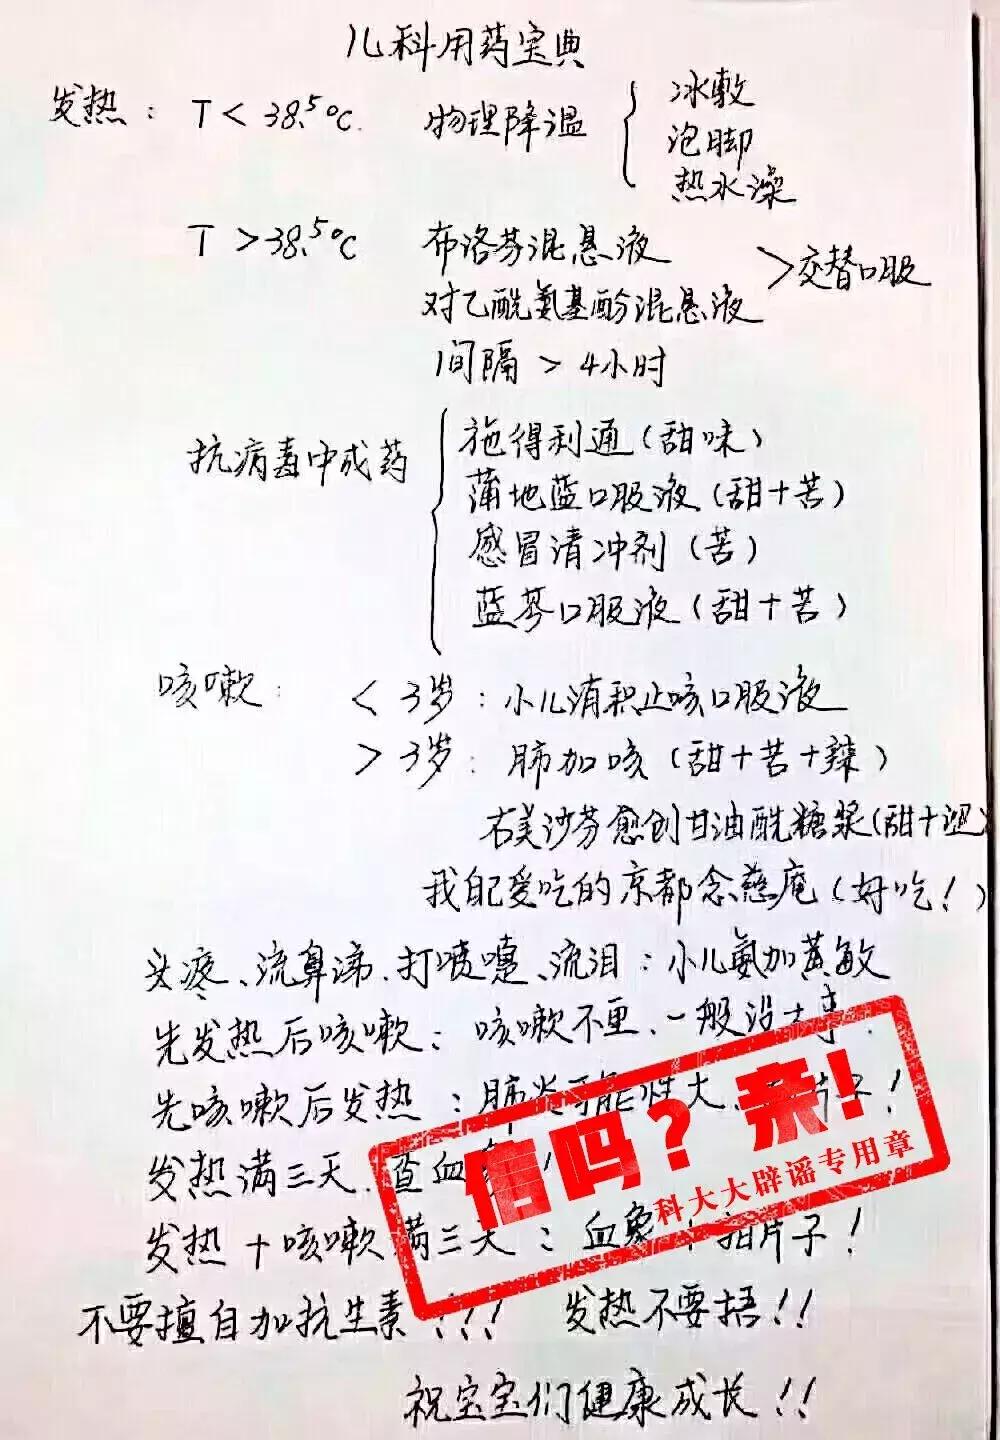 儿科用药宝典
发热: T < 38.5℃. 物理降温 { 冰敷
泡脚
热水澡
T > 38.5℃ 布洛芬混悬液
对乙酰氨基酚混悬液 > 交替口服
间隔 > 4小时
抗病毒中成药 { 施得利通(甜味)
蒲地蓝口服液(甜+苦)
感冒清冲剂(苦)
蓝芩口服液(甜+苦)
咳嗽: < 3岁: 小儿消积止咳口服液
> 3岁: 肺加咳(甜+苦+辣)
右美沙芬愈创甘油酰糖浆(甜+
我自己爱吃的京都念慈庵(好吃!)
头疼、流鼻涕、打喷嚏、流泪: 小儿氨加黄敏
先发热后咳嗽: 咳嗽不重、一般没大事.
先咳嗽后发热: 肺炎可能性大、片子!
发热满三天、查血!
发热+咳嗽满三天: 血象+拍片子!
不要擅自加抗生素!!! 发热不要捂!!
祝宝宝们健康成长!!
信吗?亲!
科大大辟谣专用章